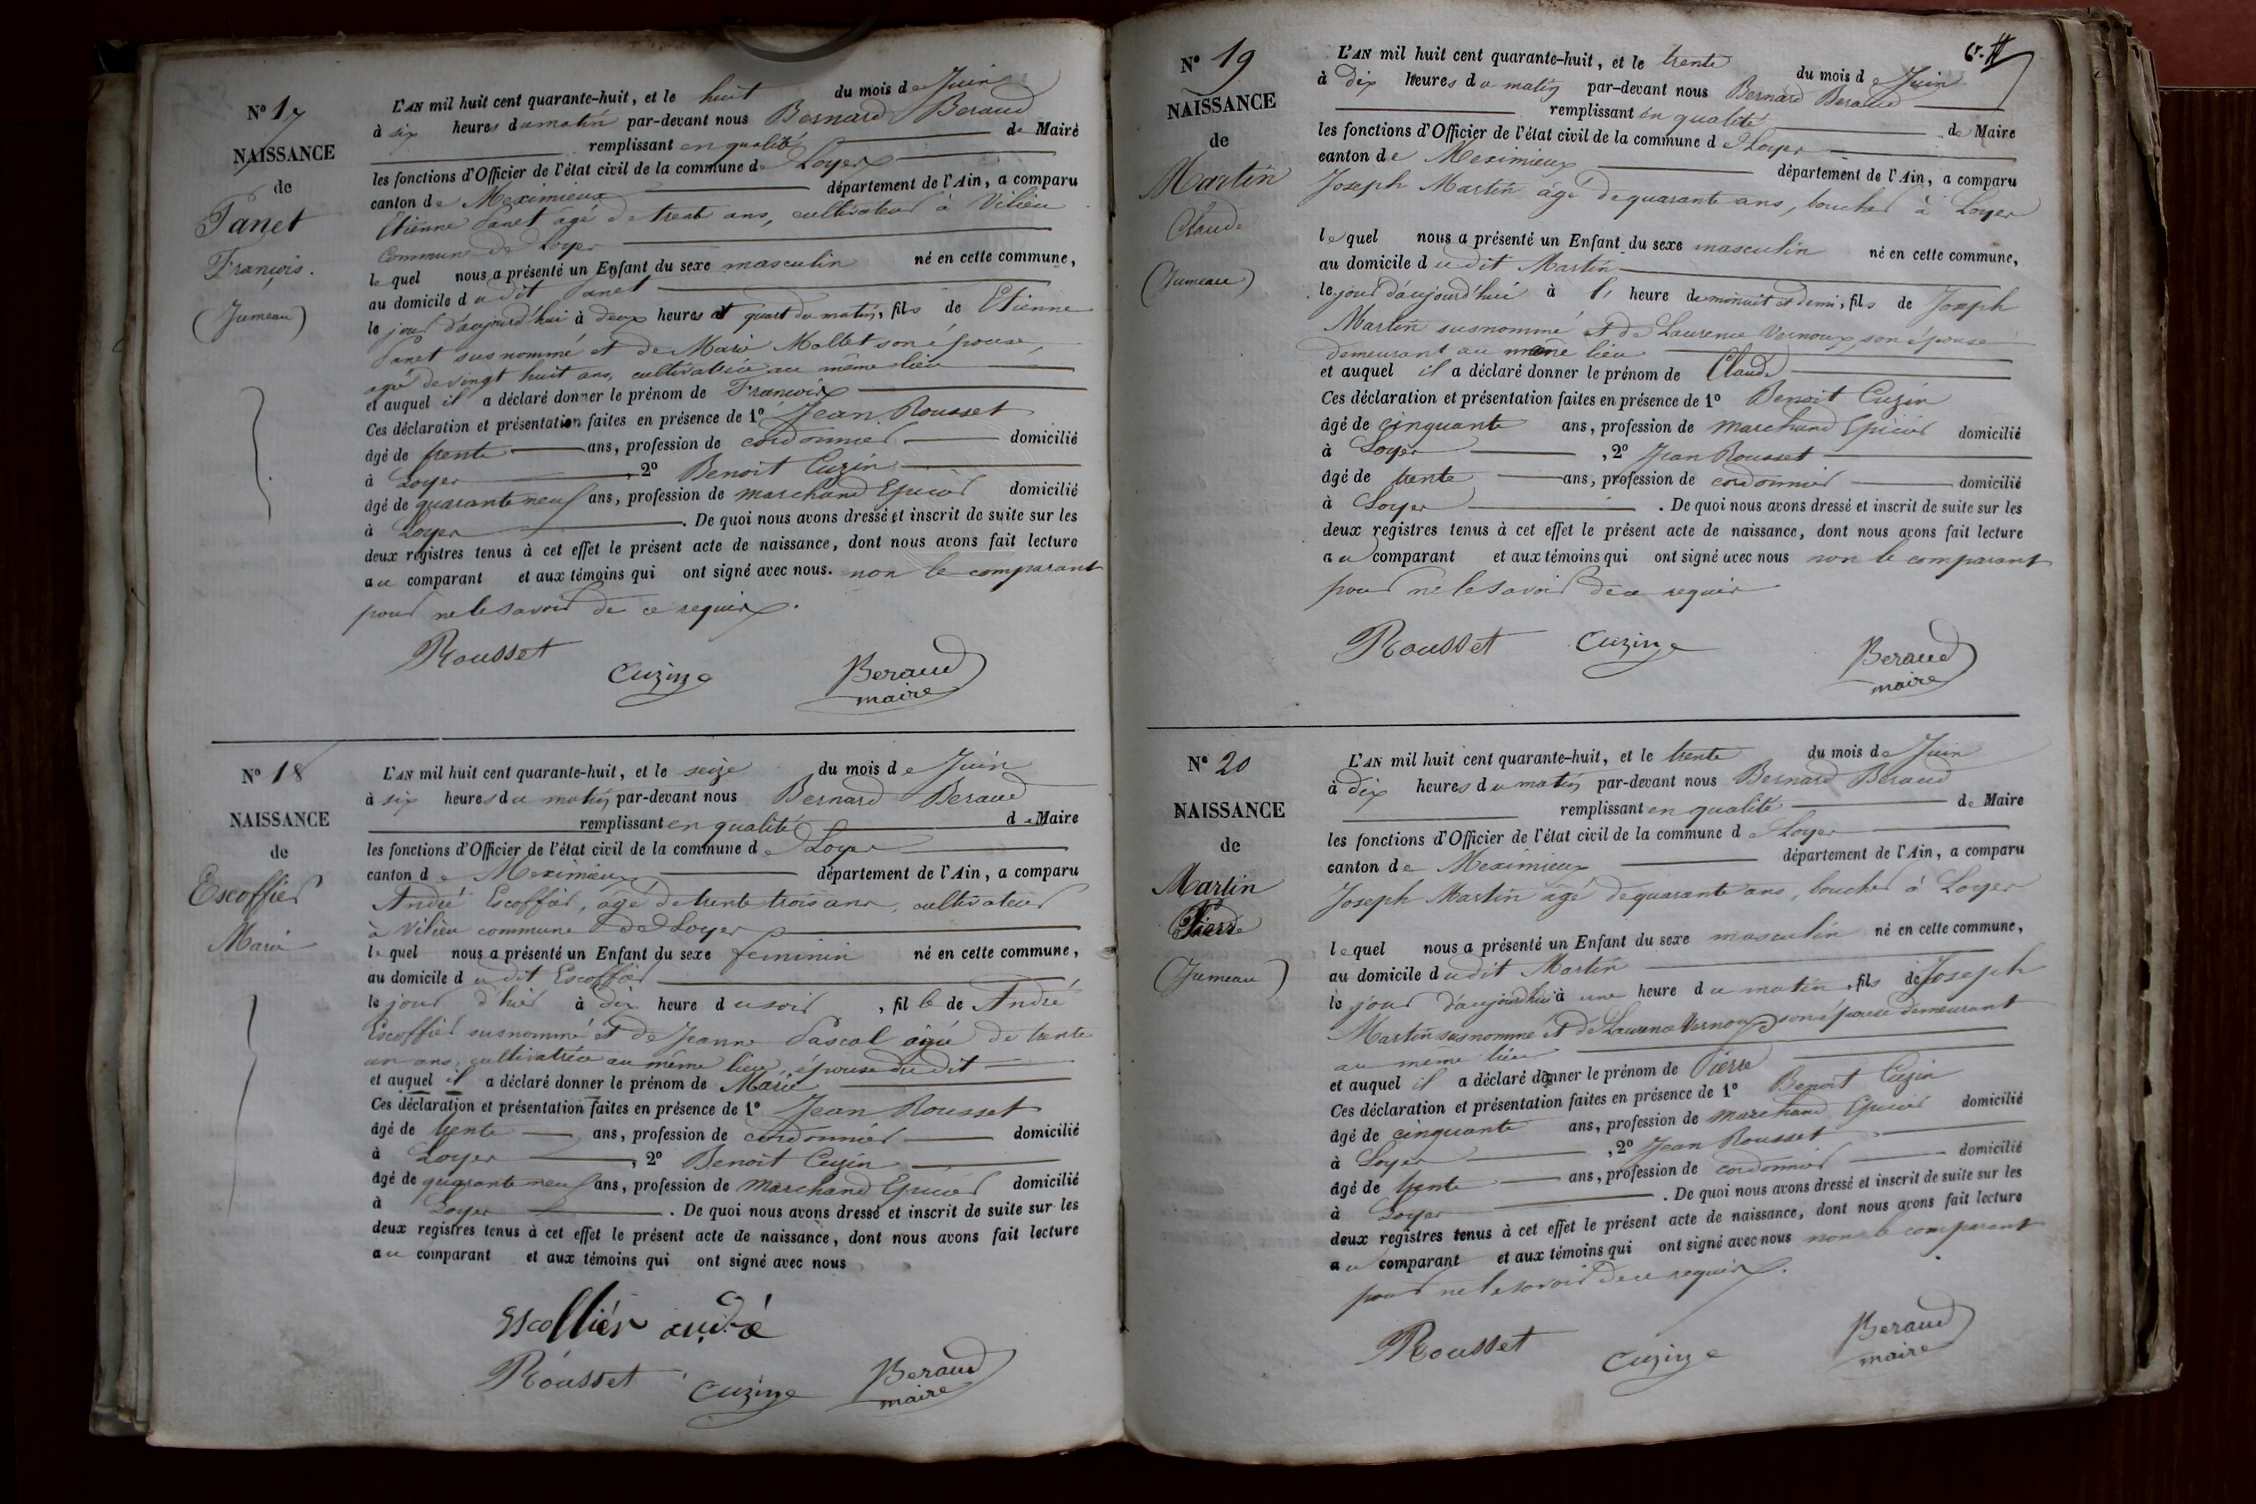 N° 17
NAISSANCE
de
Panet
François.
(Jumeau)
L'AN mil huit cent quarante-huit, et le huit du mois de Juin
à six heures du matin par-devant nous Bernard Beraud
remplissant en qualité de Maire
les fonctions d'Officier de l'état civil de la commune de Loyes
canton de Meximieux département de l'Ain, a comparu
Etienne Panet agé de trente ans, cultivateur à Vilieu
Commune de Loyes
lequel nous a présenté un Enfant du sexe masculin né en cette commune,
au domicile dudit Panet
le jour d'aujourd'hui à deux heures et quart du matin, fils de Etienne
Panet susnommé et de Marie Mollet son épouse,
agée de vingt huit ans, cultivatrice au même lieu
et auquel il a déclaré donner le prénom de François
Ces déclaration et présentation faites en présence de 1° Jean Rousset
âgé de trente ans, profession de cordonnier domicilié
à Loyes , 2° Benoit Cuzin
âgé de quarante neuf ans, profession de marchand Epicier domicilié
à Loyes . De quoi nous avons dressé et inscrit de suite sur les
deux registres tenus à cet effet le présent acte de naissance, dont nous avons fait lecture
au comparant et aux témoins qui ont signé avec nous. non le comparant
pour ne le savoir de ce requis.
Rousset
Cuzin
Beraud
maire
N° 18
NAISSANCE
de
Escoffier
Marie
L'AN mil huit cent quarante-huit, et le seize du mois de Juin
à six heures du matin par-devant nous Bernard Beraud
remplissant en qualité de Maire
les fonctions d'Officier de l'état civil de la commune de Loyes
canton de Meximieux département de l'Ain, a comparu
André Escoffier, agé de trente trois ans, cultivateur
à Vilieu commune de Loyes
lequel nous a présenté un Enfant du sexe feminin né en cette commune,
au domicile dudit Escoffier
le jour d'hier à dix heure du soir , fille de André
Escoffier susnommé et de Jeanne Pascal agée de trente
un ans, cultivatrice au même lieu, épouse du dit
et auquel il a déclaré donner le prénom de Marie
Ces déclaration et présentation faites en présence de 1° Jean Rousset
âgé de trente ans, profession de cordonnier domicilié
à Loyes , 2° Benoit Cuzin
âgé de quarante neuf ans, profession de marchand Epicier domicilié
à Loyes . De quoi nous avons dressé et inscrit de suite sur les
deux registres tenus à cet effet le présent acte de naissance, dont nous avons fait lecture
au comparant et aux témoins qui ont signé avec nous
Escoffier andré
Rousset
Cuzin
Beraud
maire
N° 19
NAISSANCE
de
Martin
Claude
(Jumeau)
L'AN mil huit cent quarante-huit, et le trente du mois de Juin
à dix heures du matin par-devant nous Bernard Beraud
remplissant en qualité de Maire
les fonctions d'Officier de l'état civil de la commune de Loyes
canton de Meximieux département de l'Ain, a comparu
Joseph Martin agé de quarante ans, boucher à Loyes
lequel nous a présenté un Enfant du sexe masculin né en cette commune,
au domicile dudit Martin
le jour d'aujourd'hui à l' heure de minuit et demi, fils de Joseph
Martin susnommé et de Laurence Vernoux, son épouse
demeurant au même lieu
et auquel il a déclaré donner le prénom de Claude
Ces déclaration et présentation faites en présence de 1° Benoit Cuzin
âgé de cinquante ans, profession de marchand Epicier domicilié
à Loyes , 2° Jean Rousset
âgé de trente ans, profession de cordonnier domicilié
à Loyes . De quoi nous avons dressé et inscrit de suite sur les
deux registres tenus à cet effet le présent acte de naissance, dont nous avons fait lecture
au comparant et aux témoins qui ont signé avec nous non le comparant
pour ne le savoir de ce requis
Rousset
Cuzin
Beraud
maire
N° 20
NAISSANCE
de
Martin
Pierre
(Jumeau)
L'AN mil huit cent quarante-huit, et le trente du mois de Juin
à dix heures du matin par-devant nous Bernard Beraud
remplissant en qualité de Maire
les fonctions d'Officier de l'état civil de la commune de Loyes
canton de Meximieux département de l'Ain, a comparu
Joseph Martin agé de quarante ans, boucher à Loyes
lequel nous a présenté un Enfant du sexe masculin né en cette commune,
au domicile dudit Martin
le jour d'aujourd'hui à une heure du matin, fils de Joseph
Martin susnommé et de Laurence Vernoux son épouse demeurant
au même lieu
et auquel il a déclaré donner le prénom de Pierre
Ces déclaration et présentation faites en présence de 1° Benoit Cuzin
âgé de cinquante ans, profession de marchand Epicier domicilié
à Loyes , 2° Jean Rousset
âgé de trente ans, profession de cordonnier domicilié
à Loyes . De quoi nous avons dressé et inscrit de suite sur les
deux registres tenus à cet effet le présent acte de naissance, dont nous avons fait lecture
au comparant et aux témoins qui ont signé avec nous non le comparant
pour ne le savoir de ce requis.
Rousset
Cuzin
Beraud
maire